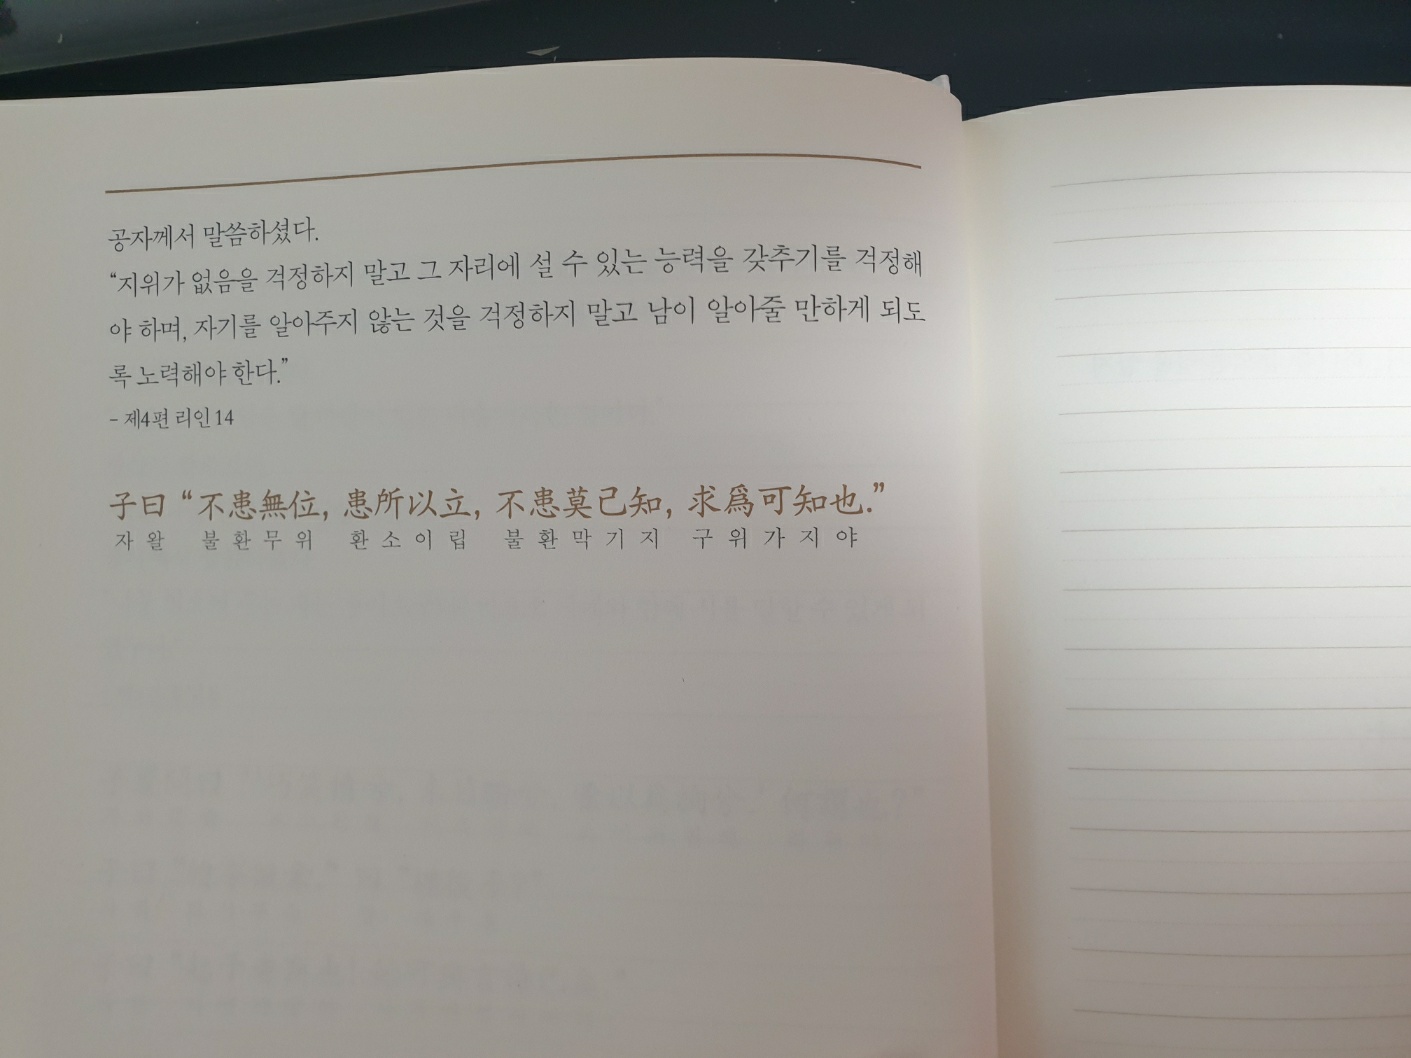 공자께서 말씀하셨다.
“지위가 없음을 걱정하지 말고 그 자리에 설 수 있는 능력을 갖추기를 걱정해
야 하며, 자기를 알아주지 않는 것을 걱정하지 말고 남이 알아줄 만하게 되도
록 노력해야 한다.”
– 제4편 리인 14
子曰 “不患無位, 患所以立, 不患莫己知, 求爲可知也.”
자 왈 불 환 무 위 환 소 이 립 불 환 막 기 지 구 위 가 지 야